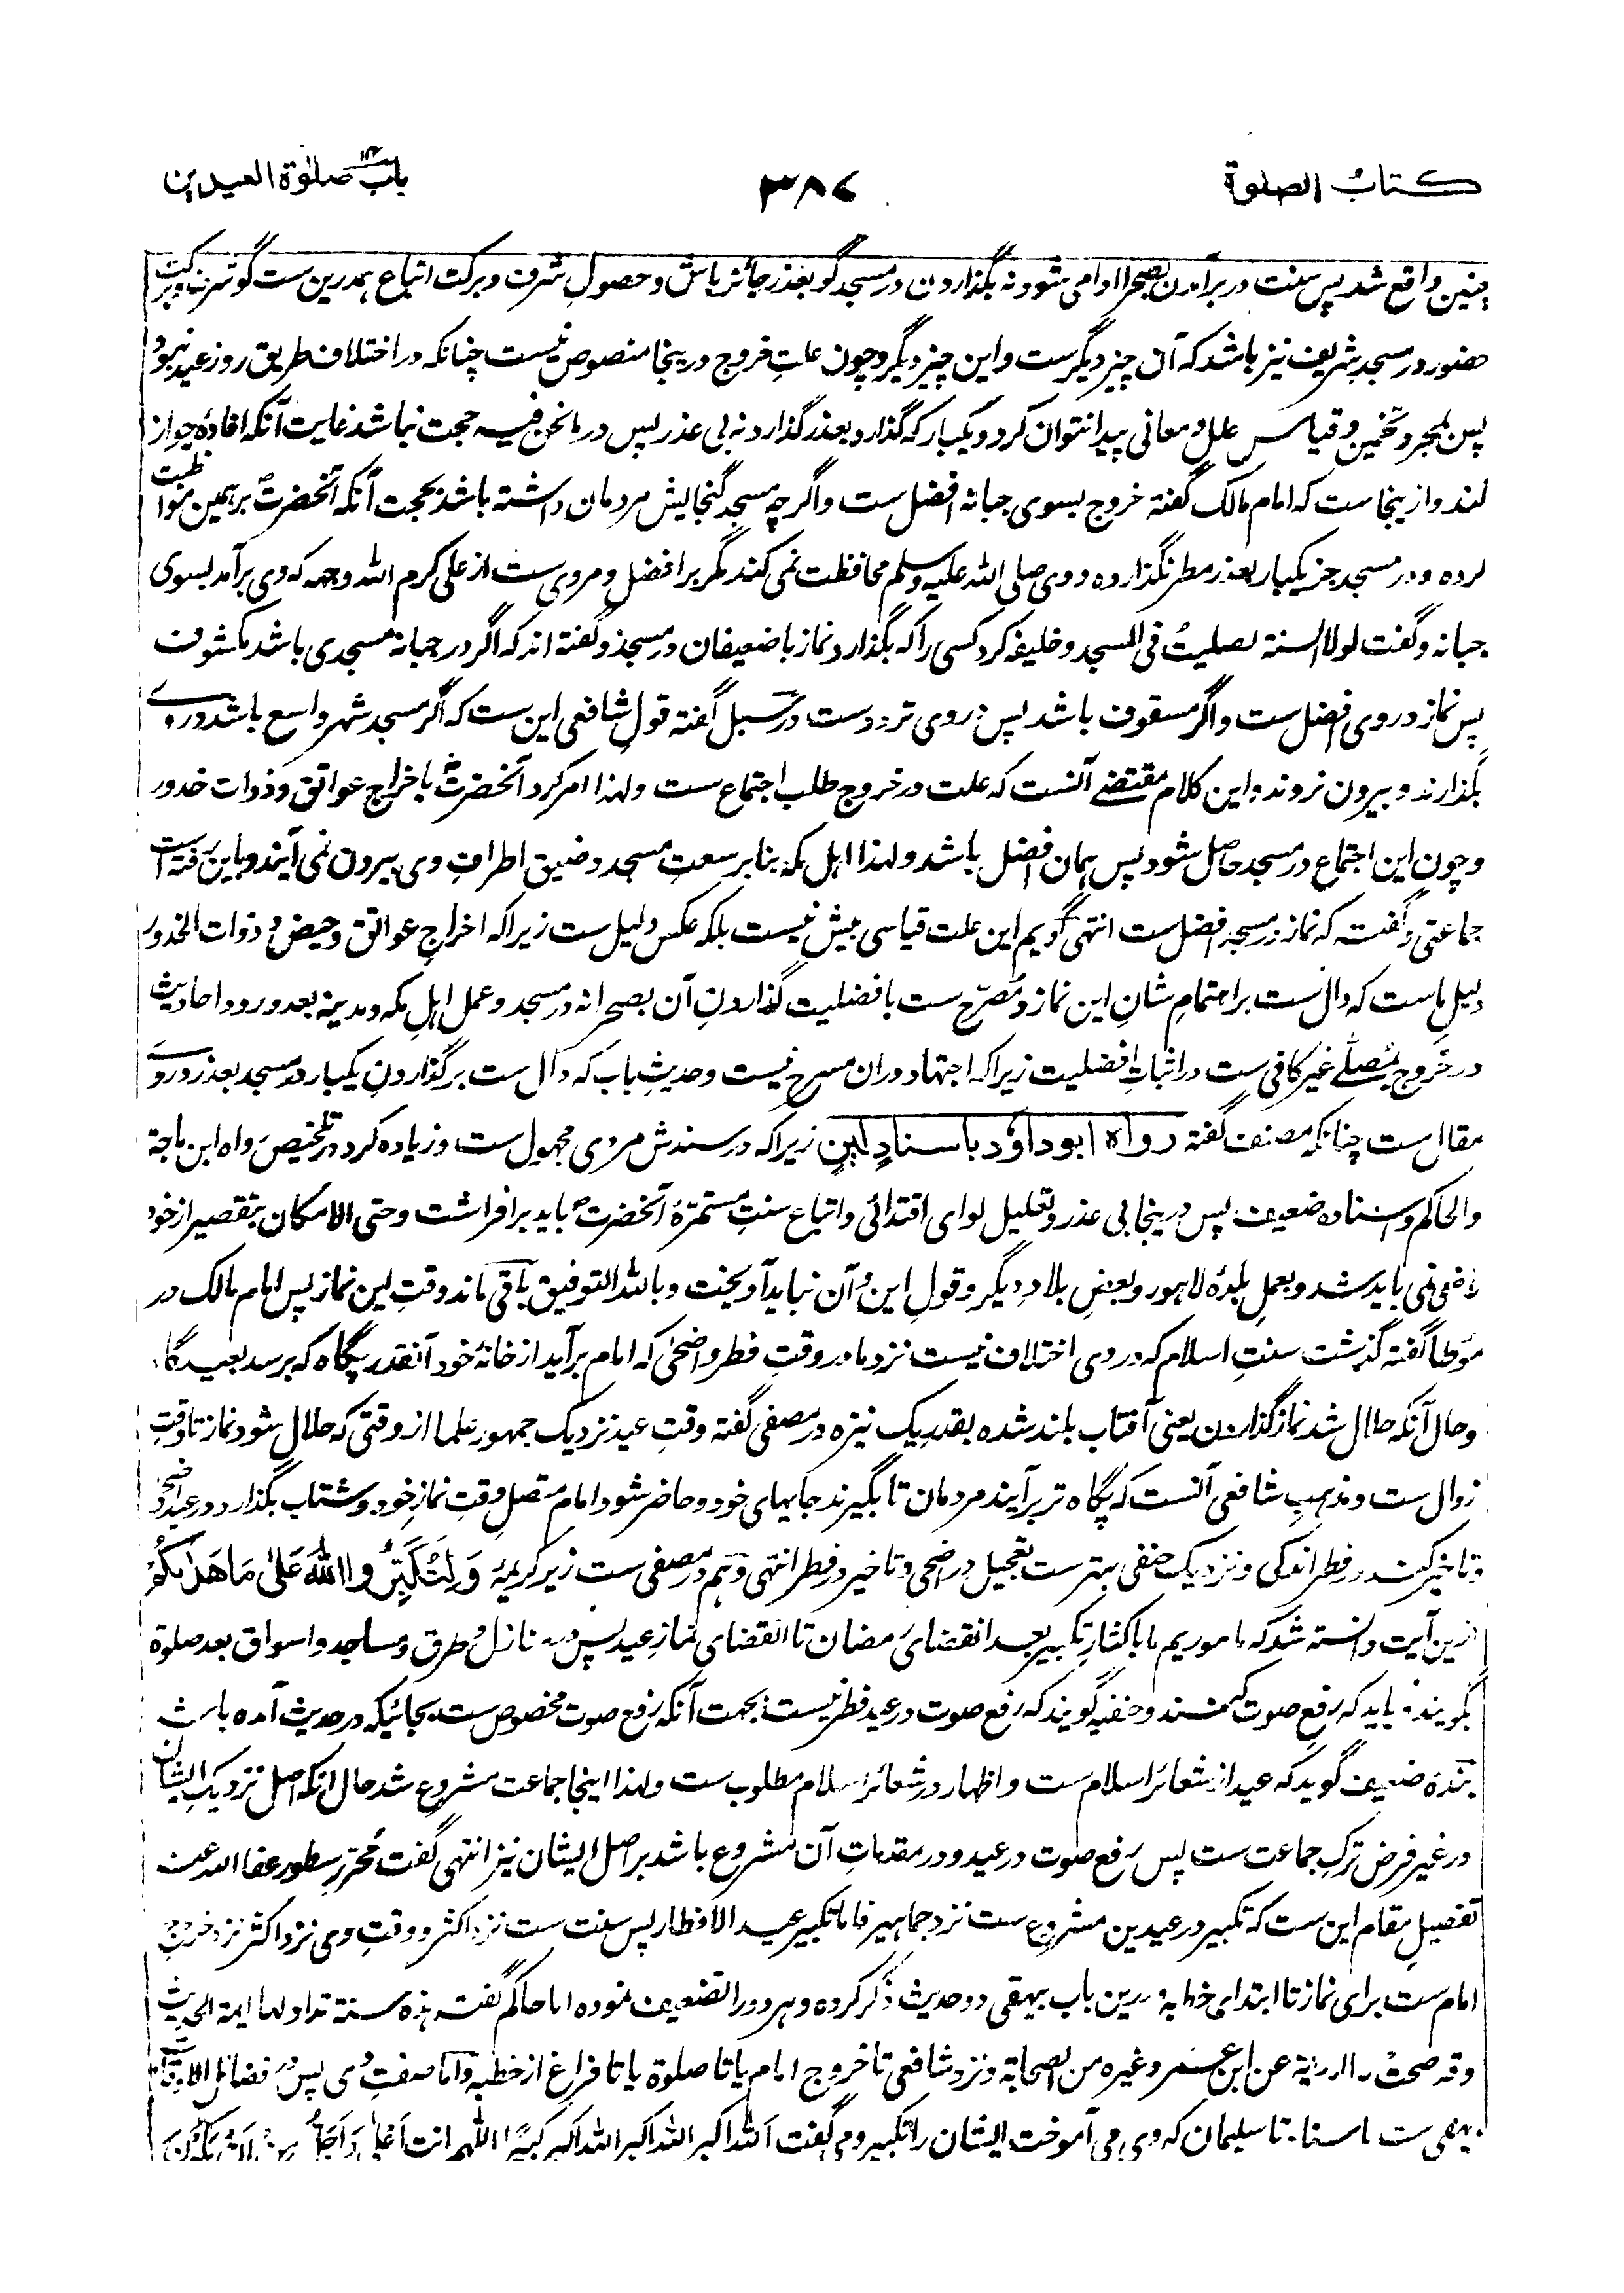 کتاب الصلوة
۳۸۷
باب صلوٰة العیدین
چنین واقع شد پس سنت در برآمدن بصحرا ادا می شود نه بگذاردن در مسجد گو بعذر جائز باشد و حصولِ شرف و برکت اتباع همدرین ست گو شرف و برکت
حضور در مسجدِ شریف نیز باشد که آن چیز دیگرست و این چیز دیگر و چون علتِ خروج درینجا منصوص نیست چنانکه در اختلاف طریق روز عید نبود
پس بمجرد تخمین و قیاس علل و معانی پیدا نتوان کرد و یکبار که گذارد بعذر گذارد نه بی عذر پس در مانحن فیه حجت نباشد غایت آنکه افادهٔ جواز
کند و ازینجاست که امام مالک گفته خروج بسوی جبانه افضل ست و اگرچه مسجد گنجایش مردمان داشته باشد بحجت آنکه آنحضرت بر همین مواظبت
کرده و در مسجد جز یکبار بعذر مطر نگذارده و وی صلی الله علیه وسلم محافظت نمی کند مگر بر افضل و مروی ست از علی کرم الله وجهه که وی برآمد بسوی
جبانه و گفت لولا السنة لصلیتُ فی المسجد و خلیفه کرد کسی را که بگذارد نماز با ضعیفان در مسجد و گفته اند که اگر در جبانه مسجدی باشد مکشوف
پس نماز در وی افضل ست و اگر مسقوف باشد پس در وی تردد ست در سبل گفته قولِ شافعی این ست که اگر مسجد شهر واسع باشد در وے
بگذارند و بیرون نروند و این کلام مقتضے آنست که علت در خروج طلب اجتماع ست ولهذا امر کرد آنحضرت باخراج عواتق و ذوات خدور
و چون این اجتماع در مسجد حاصل شود پس همان افضل باشد ولهذا اهل مکه بنابر سعتِ مسجد و ضیق اطرافِ وی بیرون نمی آیند و باین رفته است
جماعتی و گفته که نماز در مسجد افضل ست انتهی گویم این علت قیاسی بیش نیست بلکه عکس دلیل ست زیراکه اخراجِ عواتق و حیض و ذوات الخدور
دلیل ماست که دال ست بر اهتمامِ شانِ این نماز و مُصرّح ست بافضلیت گذاردنِ آن بصحرا نه در مسجد و عمل اهلِ مکه و مدینه بعد ورود احادیث
در خروج بمُصلّے غیر کافی ست در اثباتِ افضلیت زیراکه اجتهاد دران مسرح نیست و حدیثِ باب که دال ست بر گذاردنِ یکبار در مسجد بعذر در وے
مقال ست چنانکه مصنف گفته رواه ابو داؤد باسنادٍ لینٍ زیراکه در سندش مردی مجهول ست و زیاده کرد در تلخیص رواه ابن ماجة
والحاکم و اسناده ضعیف پس درینجا بی عذر و تعلیل لوای اقتدائی و اتباع سنتِ مستمرهٔ آنحضرت باید برافراشت و حتی الامکان بتقصیر از خود
راضی نمی باید شد و بعملِ بلدهٔ لاهور و بعضِ بلادِ دیگر و قولِ این و آن نباید آویخت و بالله التوفیق باقی ماند وقتِ این نماز پس امام مالک در
مؤطا گفته گذشت سنتِ اسلام که در وی اختلاف نیست نزد ما در وقتِ فطر و اضحیٰ که امام برآید از خانهٔ خود آنقدر پگاه که برسد بعیدگاه
و حال آنکه حلال شد نماز گذاردن یعنی آفتاب بلند شده بقدر یک نیزه در مصفی گفته وقتِ عید نزدیک جمهور علما از وقتی که حلال شود نماز تا وقتِ
زوال ست و مذهبِ شافعی آنست که پگاه تر برآیند مردمان تا بگیرند جایهای خود و حاضر شود امام متصل وقتِ نمازِ خود و شتاب بگذارد در عید اضحیٰ
و تاخیر کند در فطر اندکی و نزدیک حنفی بهترست تعجیل در اضحی و تاخیر در فطر انتهی و هم در مصفی ست زیر کریمهٔ وَلِتُكَبِّرُوا اللّٰهَ عَلىٰ مَا هَدٰىكُمْ
ازین آیت دانسته شد که ماموریم ما باکثارِ تکبیر بعد انقضای رمضان تا انقضای نمازِ عید پس در منازل و طرق و مساجد و اسواق بعد صلوة
بگویند و باید که رفعِ صوت کنند و حنفیه گویند که رفع صوت در عید فطر نیست بجهت آنکه رفع صوت مخصوص ست بجائیکه در حدیث آمده باشد
بندهٔ ضعیف گوید که عید از شعائر اسلام ست و اظهار در شعائر اسلام مطلوب ست ولهذا اینجا جماعت مشروع شد حال آنکه اصل نزدیک ایشان
در غیر فرض ترکِ جماعت ست پس رفع صوت در عید و در مقدماتِ آن مشروع باشد بر اصل ایشان نیز انتهی گفت مُحرّرِ سطور عفا الله عنه
تفصیلِ مقام این ست که تکبیر در عیدین مشروع ست نزد جماهیر فاما تکبیر عید الافطار پس سنت ست نزد اکثر و وقتِ وی نزد اکثر نزد خروج
امام ست برای نماز تا ابتدای خطبه و درین باب بیهقی دو حدیث ذکر کرده و هر دو را تضعیف نموده اما حاکم گفته هذه سنة تداولها ایمة الحدیث
وقد صحت به الروایة عن ابن عمر وغیره من الصحابة و نزد شافعی تا خروج امام یا تا صلوة یا تا فراغ از خطبه و اما صفتِ وی پس در فضائل الاوقات
بیهقی ست باسناد تا سلیمان که وی می آموخت ایشان را تکبیر و می گفت الله اکبر الله اکبر الله اکبر کبیرًا اللهم انت اَعلیٰ وَاَجَلُّ من ان تکون